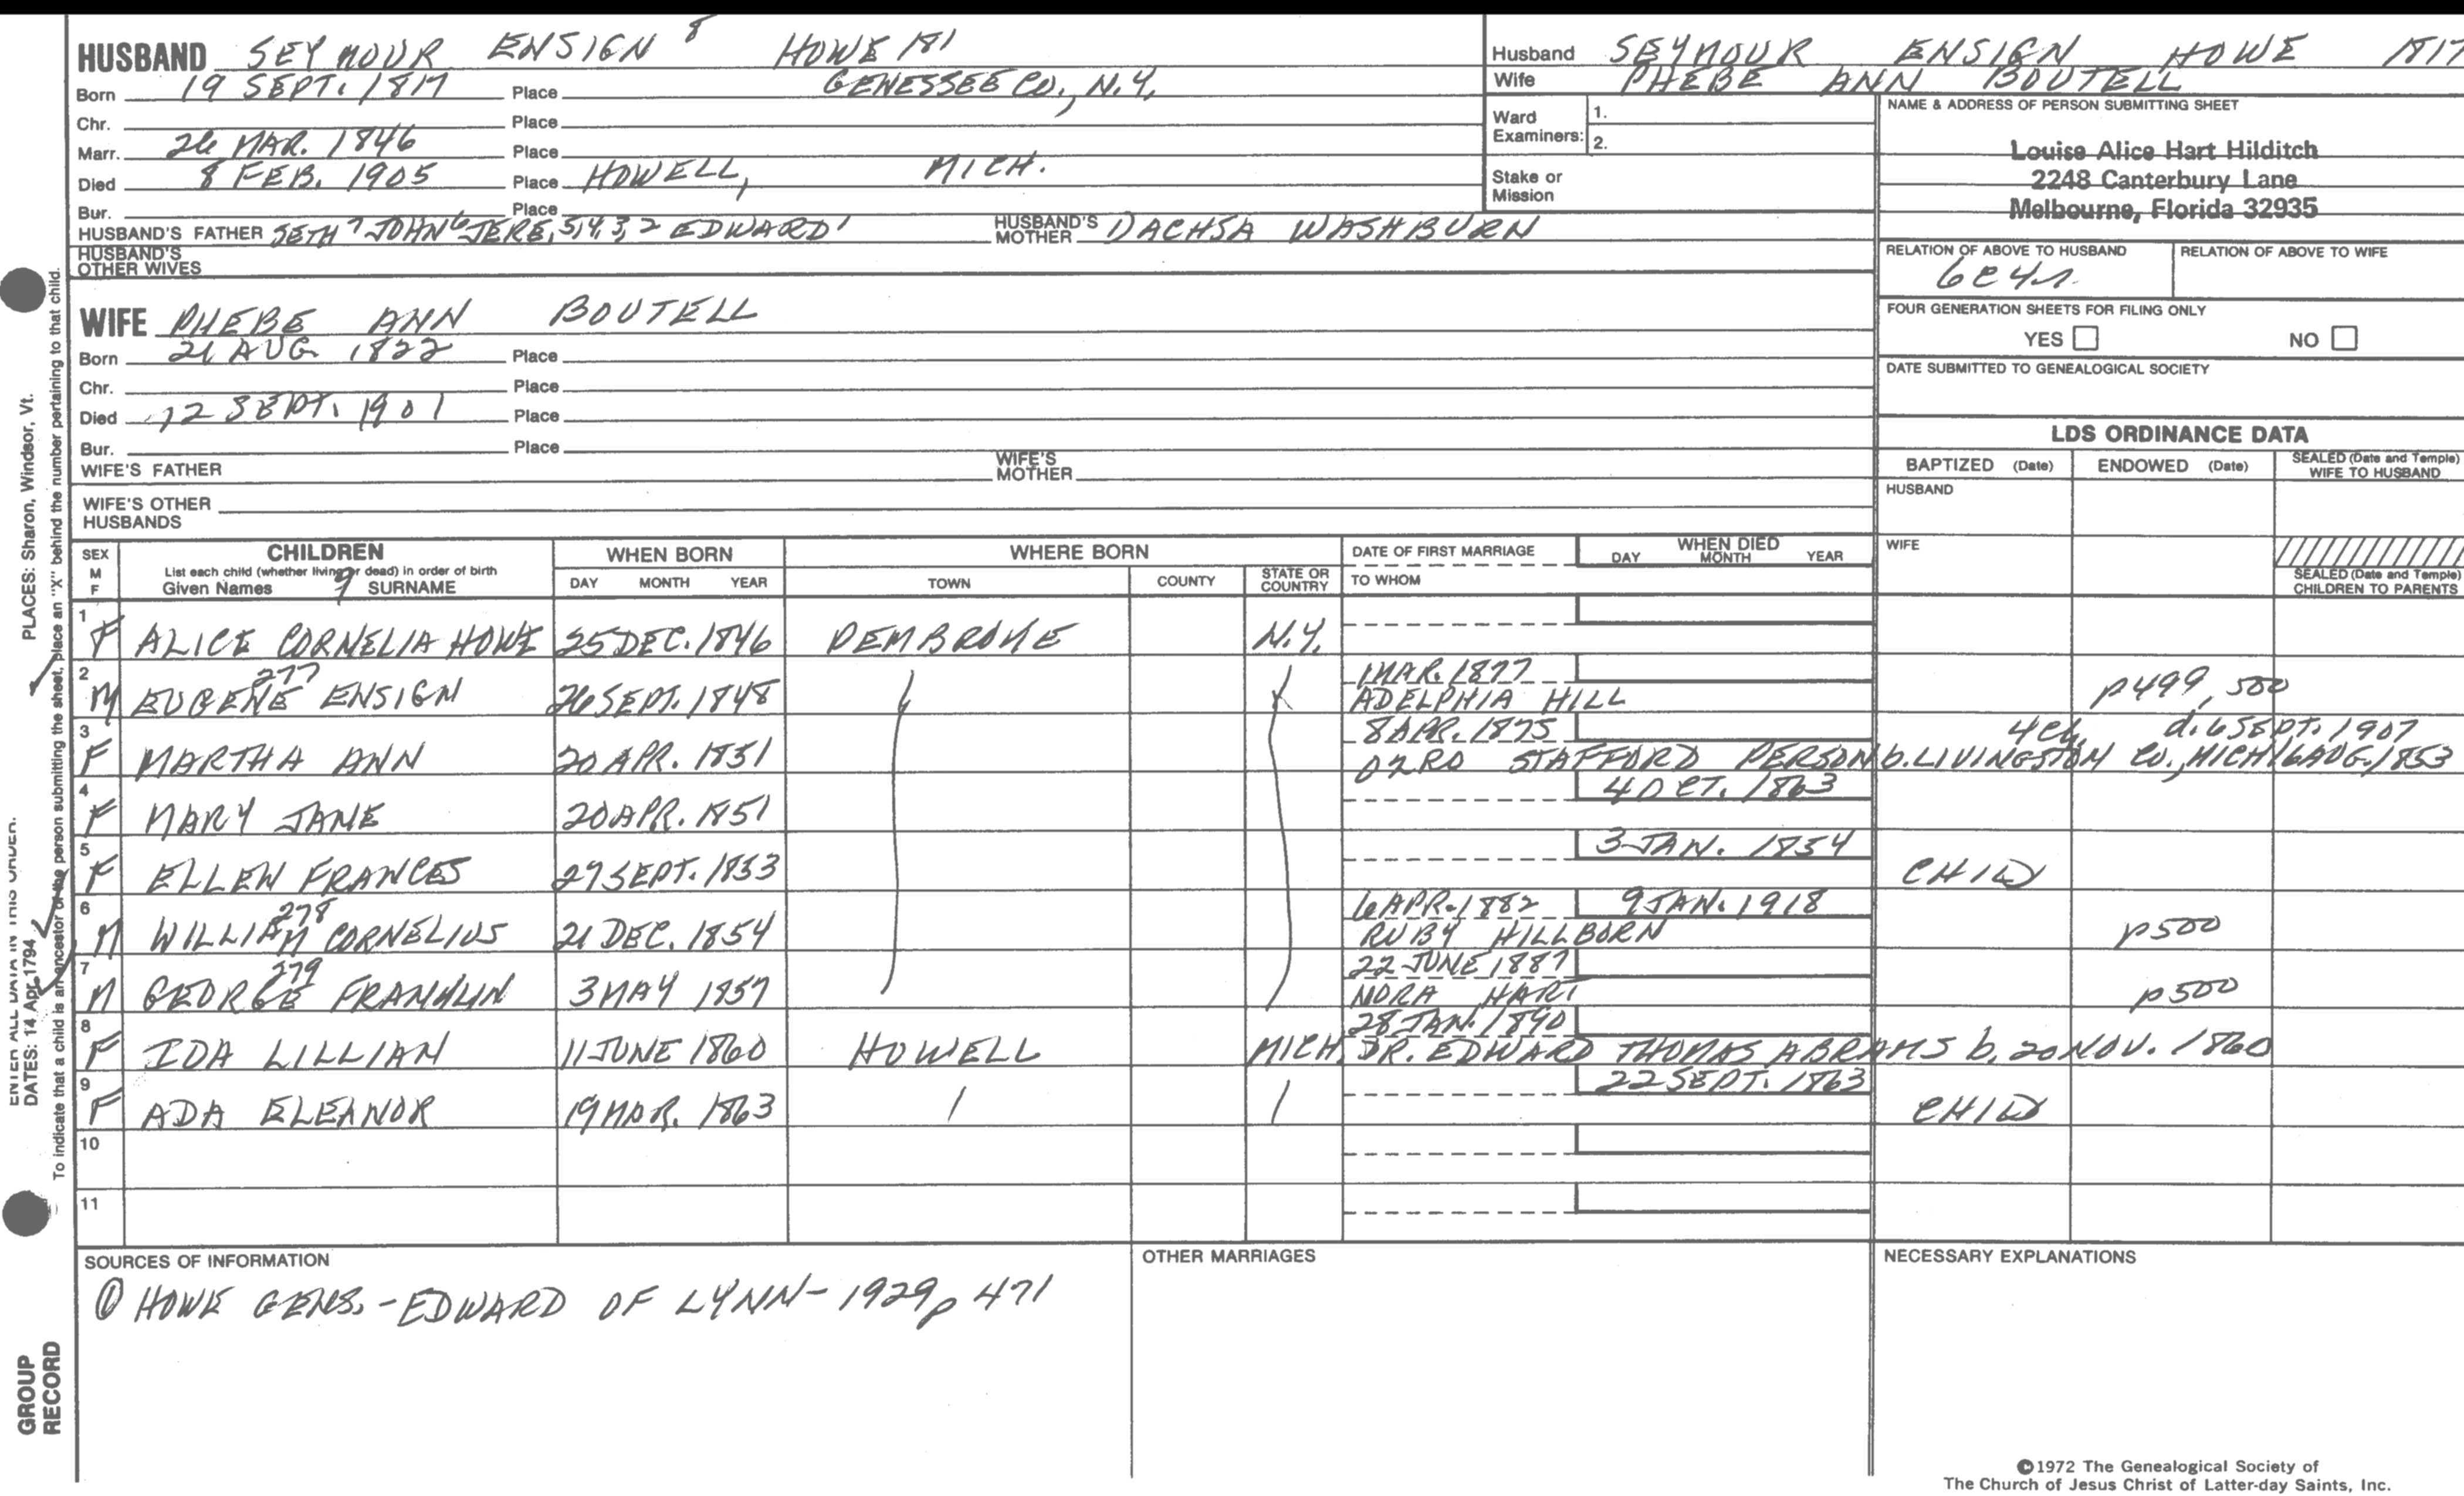 HUSBAND SEYMOUR ENSIGN 8 HOWE 181
Born 19 SEPT. 1817 Place GENESSEE CO., N.Y.
Chr. Place
Marr. 26 MAR. 1846 Place
Died 8 FEB. 1905 Place HOWELL, MICH.
Bur. Place
HUSBAND'S FATHER SETH 7 JOHN 6 JERE, 5,4,3,2 EDWARD 1 HUSBAND'S MOTHER DACHSA WASHBURN
HUSBAND'S OTHER WIVES
Husband SEYMOUR ENSIGN HOWE 1817
Wife PHEBE ANN BOUTELL
Ward Examiners: 1.
2.
Stake or Mission
NAME & ADDRESS OF PERSON SUBMITTING SHEET
Louise Alice Hart Hilditch
2248 Canterbury Lane
Melbourne, Florida 32935
RELATION OF ABOVE TO HUSBAND RELATION OF ABOVE TO WIFE
FOUR GENERATION SHEETS FOR FILING ONLY
YES NO
DATE SUBMITTED TO GENEALOGICAL SOCIETY
WIFE PHEBE ANN BOUTELL
Born 21 AUG. 1822 Place
Chr. Place
Died 12 SEPT. 1901 Place
Bur. Place
WIFE'S FATHER WIFE'S MOTHER
WIFE'S OTHER HUSBANDS
LDS ORDINANCE DATA
BAPTIZED (Date) ENDOWED (Date) SEALED (Date and Temple) WIFE TO HUSBAND
HUSBAND
WIFE
SEALED (Date and Temple) CHILDREN TO PARENTS
SEX M F CHILDREN WHEN BORN WHERE BORN DATE OF FIRST MARRIAGE WHEN DIED
List each child (whether living or dead) in order of birth
Given Names 9 SURNAME DAY MONTH YEAR TOWN COUNTY STATE OR COUNTRY TO WHOM DAY MONTH YEAR
1 F ALICE CORNELIA HOWE 25 DEC. 1846 PEMBROKE N.Y.
2 M EUGENE 277 ENSIGN 26 SEPT. 1848 1 MAR. 1877 ADELPHIA HILL p499, 500
3 F MARTHA ANN 20 APR. 1851 8 APR. 1875 OZRO STAFFORD PERSON b. LIVINGSTON CO., MICH 16 AUG. 1853 4 ch. d. 6 SEPT. 1907
4 F MARY JANE 20 APR. 1851 4 OCT. 1863
5 F ELLEN FRANCES 29 SEPT. 1853 3 JAN. 1854 CHILD
6 M WILLIAM 278 CORNELIUS 21 DEC. 1854 6 APR. 1882 RUBY HILLBORN 9 JAN. 1918 p500
7 M GEORGE 279 FRANKLIN 3 MAY 1857 22 JUNE 1887 NORA HART p500
8 F IDA LILLIAN 11 JUNE 1860 HOWELL MICH. 28 JAN. 1890 DR. EDWARD THOMAS ABRAMS b. 20 NOV. 1860
9 F ADA ELEANOR 19 MAR. 1863 22 SEPT. 1863 CHILD
10
11
SOURCES OF INFORMATION
① HOWE GENS. - EDWARD OF LYNN - 1929 p 471
OTHER MARRIAGES
NECESSARY EXPLANATIONS
©1972 The Genealogical Society of
The Church of Jesus Christ of Latter-day Saints, Inc.
PLACES: Sharon, Windsor, Vt.
To indicate that a child is an ancestor of the person submitting the sheet, place an "X" behind the number pertaining to that child.
ENTER ALL DATA IN THIS ORDER:
DATES: 14 Apr 1794
GROUP RECORD